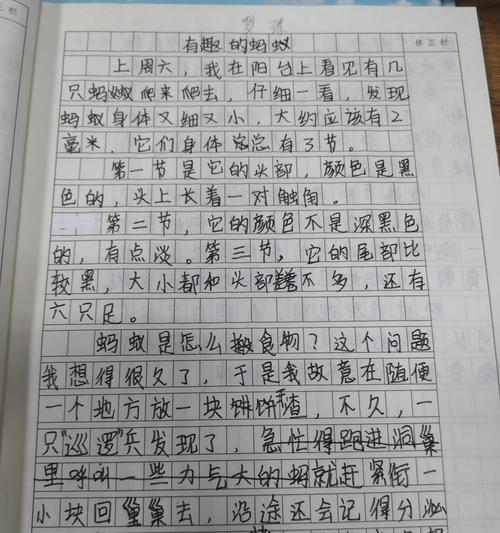 有趣的蚂蚁
修正栏
上周六，我在阳台上看见有几
只蚂蚁爬来爬去，仔细一看，发现
蚂蚁身体又细又小，大约应该有2
毫米，它们身体总总有3节。
第一节是它的头部，颜色是黑
色的，头上长着一对触角。
第二节，它的颜色不是深黑色
的，有点淡。第三节，它的尾部比
较黑，大小都和头部差不多，还有
六只足。
蚂蚁是怎么搬食物？这个问题
我想得很久了，于是我故意在随便
一个地方放一块饼饼干渣，不久，一
只“巡逻”兵发现了，急忙得跑进洞巢
里呼叫一些力气大的蚂就赶紧衔一
小块回巢巢去，沿途还会记得分泌